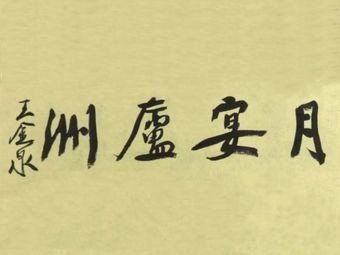 月宴廬洲
王金泉